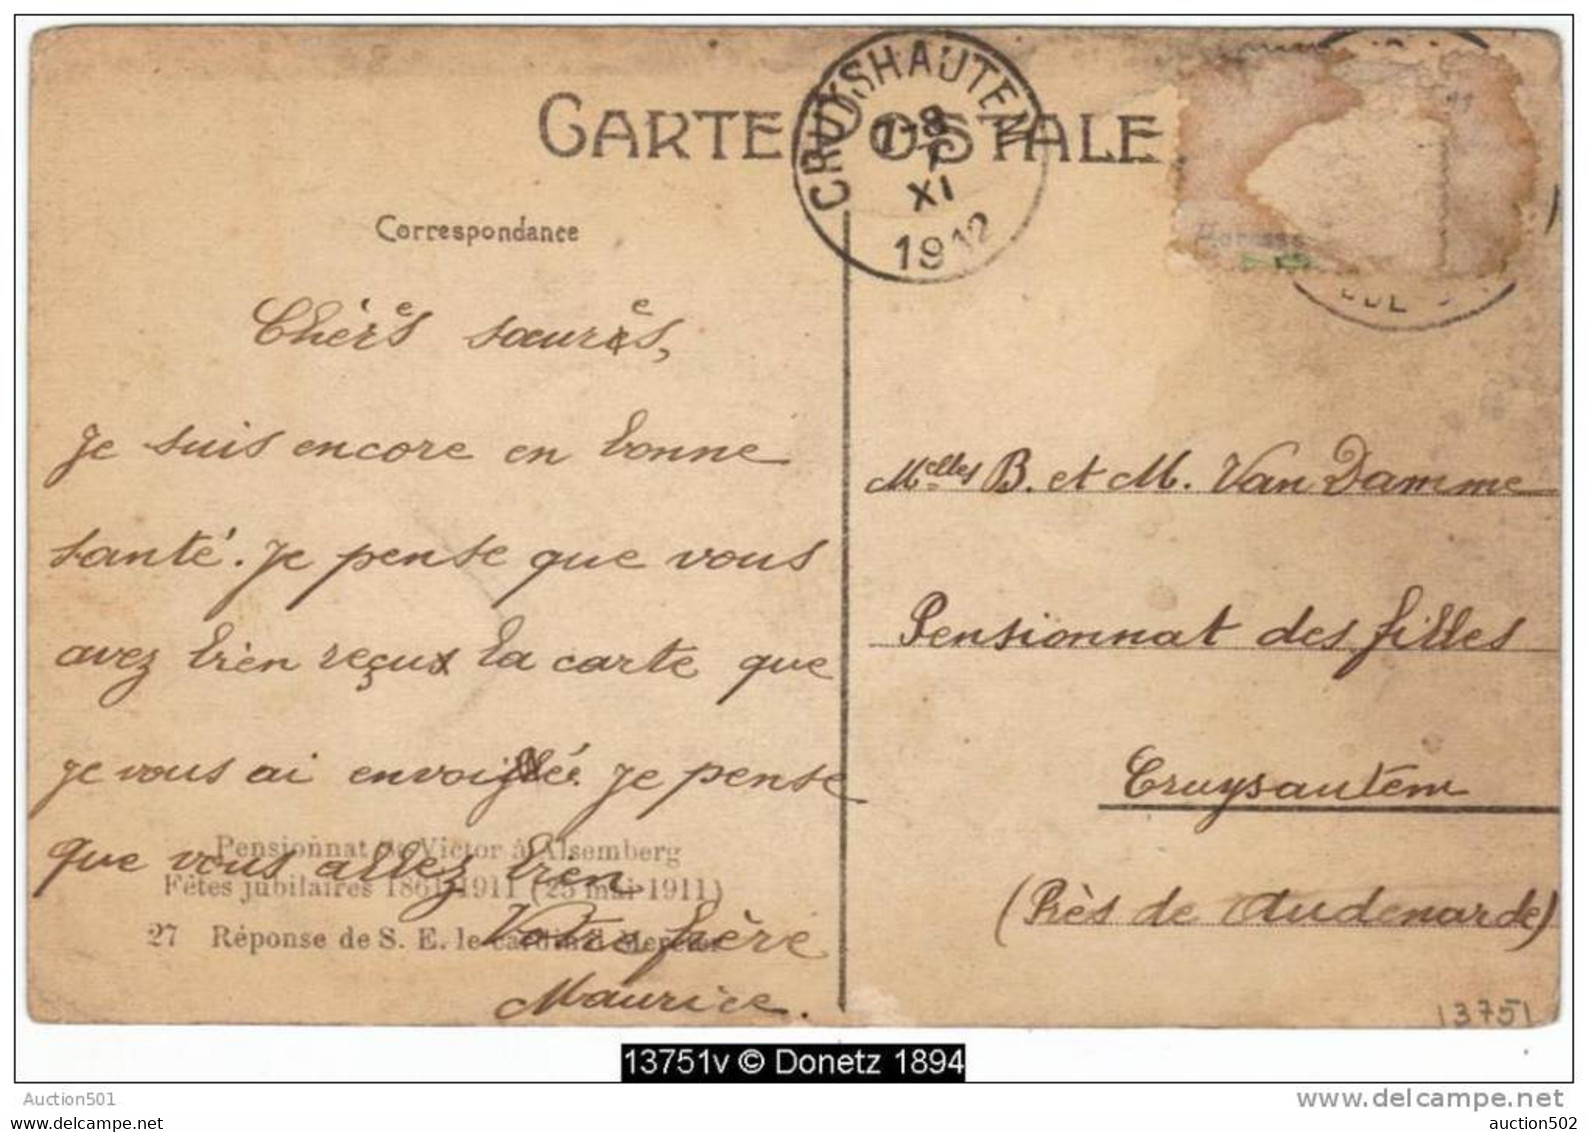 CARTE POSTALE
CRUYSHAUTEM
7-8
1
XI
1912
Correspondance
Chères sœurs,
Je suis encore en bonne
santé. Je pense que vous
avez bien reçu la carte que
je vous ai envoié. Je pense
que vous allez bien
Votre frère
Maurice.
Pensionnat de Victor à Alsemberg
Fêtes jubilaires 1861-1911 (25 mai 1911)
27 Réponse de S. E. le cardinal Mercier
Melles B. et M. Van Damme
Pensionnat des filles
Cruysautem
(Près de Audenarde)
13751
13751v © Donetz 1894
Auction501
www.delcampe.net
auction502
auction502